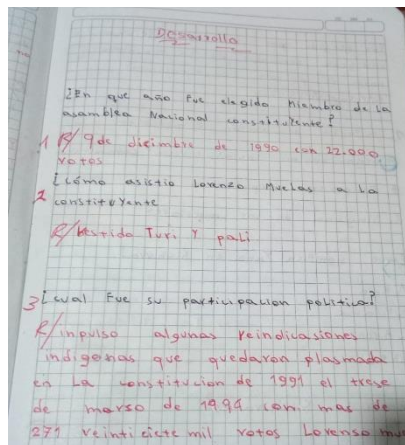 Desarrollo
¿En que año fue elegido miembro de la
asamblea Nacional constituyente?
1 R/ 9 de diciembre de 1990 con 22.000
votos
2 ¿cómo asistio Lorenzo Muelas a la
constituyente
R/ Vestido Tur. Y pali
3 ¿cual Fue su participacion politica?
R/ inpulso algunas reindicasiones
indigenas que quedaron plasmada
en La constitucion de 1991 el trese
de marso de 1994 con mas de
271 veinti ciete mil votos Lorenso mu